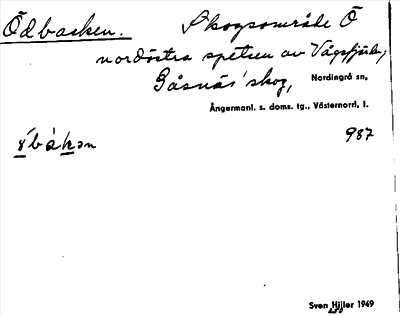 Ödbacken. Skogsområde Ö
nordöstra spetsen av Vågsfjärden,
Gåsnäs' skog, Nordingrå sn,
Ångermanl. s. doms. tg., Västernorrl. l.
987
Sven Hjller 1949